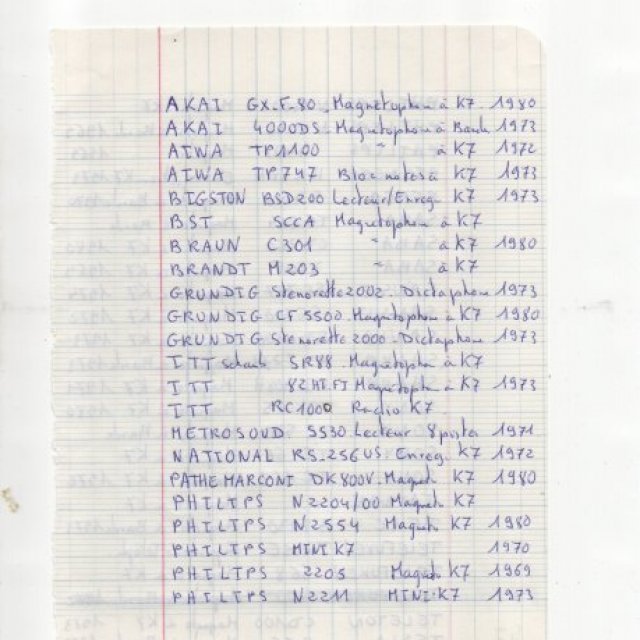 AKAI GX-F-80 Magnetophone à K7 1980
AKAI 4000DS Magnetophone à Bande 1973
AIWA TP1100 " à K7 1972
AIWA TP747 Bloc notes à K7 1973
BIGSTON BSD200 Lecteur/Enreg. K7 1973
BST SCCA Magnetophone à K7
BRAUN C301 " à K7 1980
BRANDT M203 " à K7
GRUNDIG Stenorette 2002. Dictaphone 1973
GRUNDIG CF5500 Magnetophone à K7 1980
GRUNDIG Stenorette 2000. Dictaphone 1973
ITT SR88. Magnetophone à K7
ITT 82HI.FI Magnetophone à K7 1973
ITT RC1000 Radio K7
METROSOUD. S530 Lecteur 8 pistes 1971
NATIONAL RS.256US Enreg. K7 1972
PATHE MARCONI DK800V. Magneto K7 1980
PHILIPS N2204/00 Magneto K7
PHILIPS N2554 Magneto K7 1980
PHILIPS MINI K7 1970
PHILIPS 2205 Magneto K7 1969
PHILIPS N2211 MINI.K7 1973